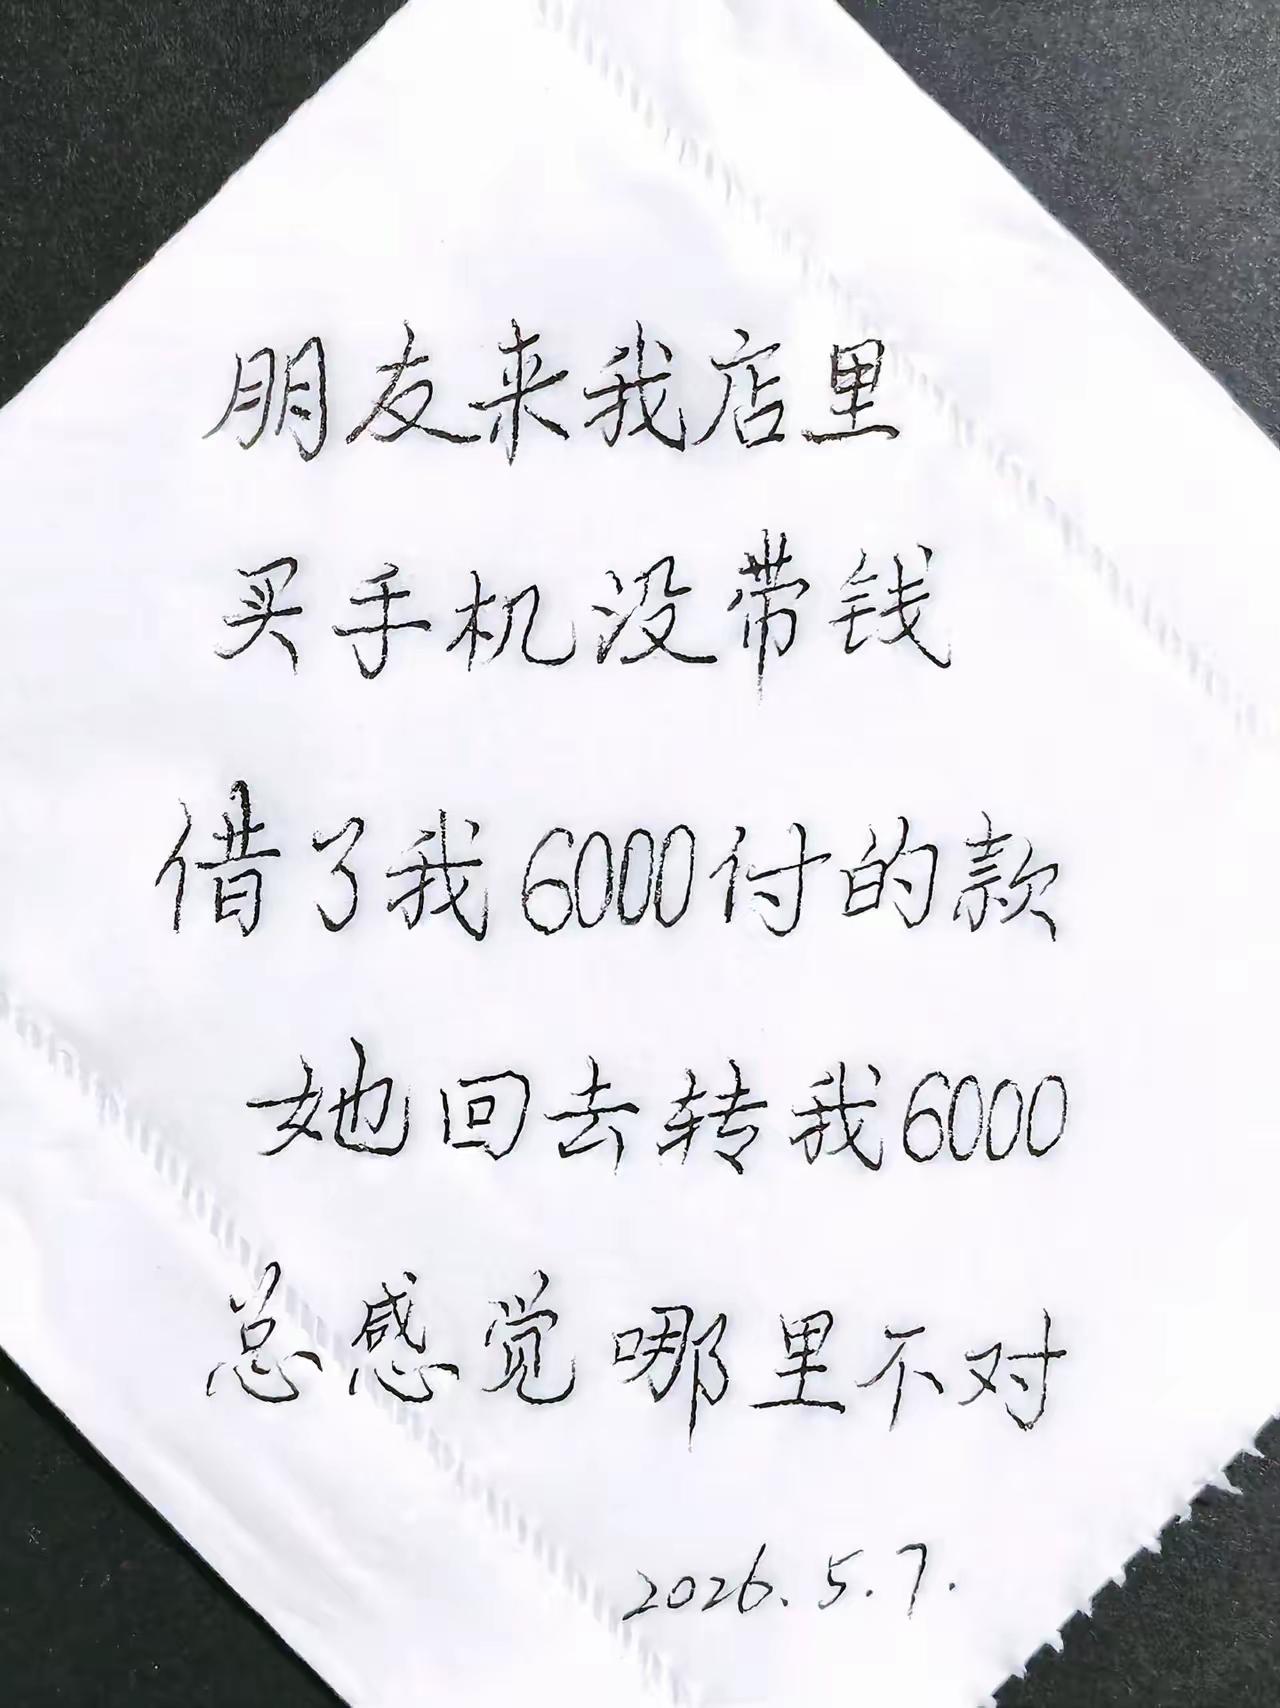 朋友来我店里
买手机没带钱
借了我6000付的款
她回去转我6000
总感觉哪里不对
2026.5.7.